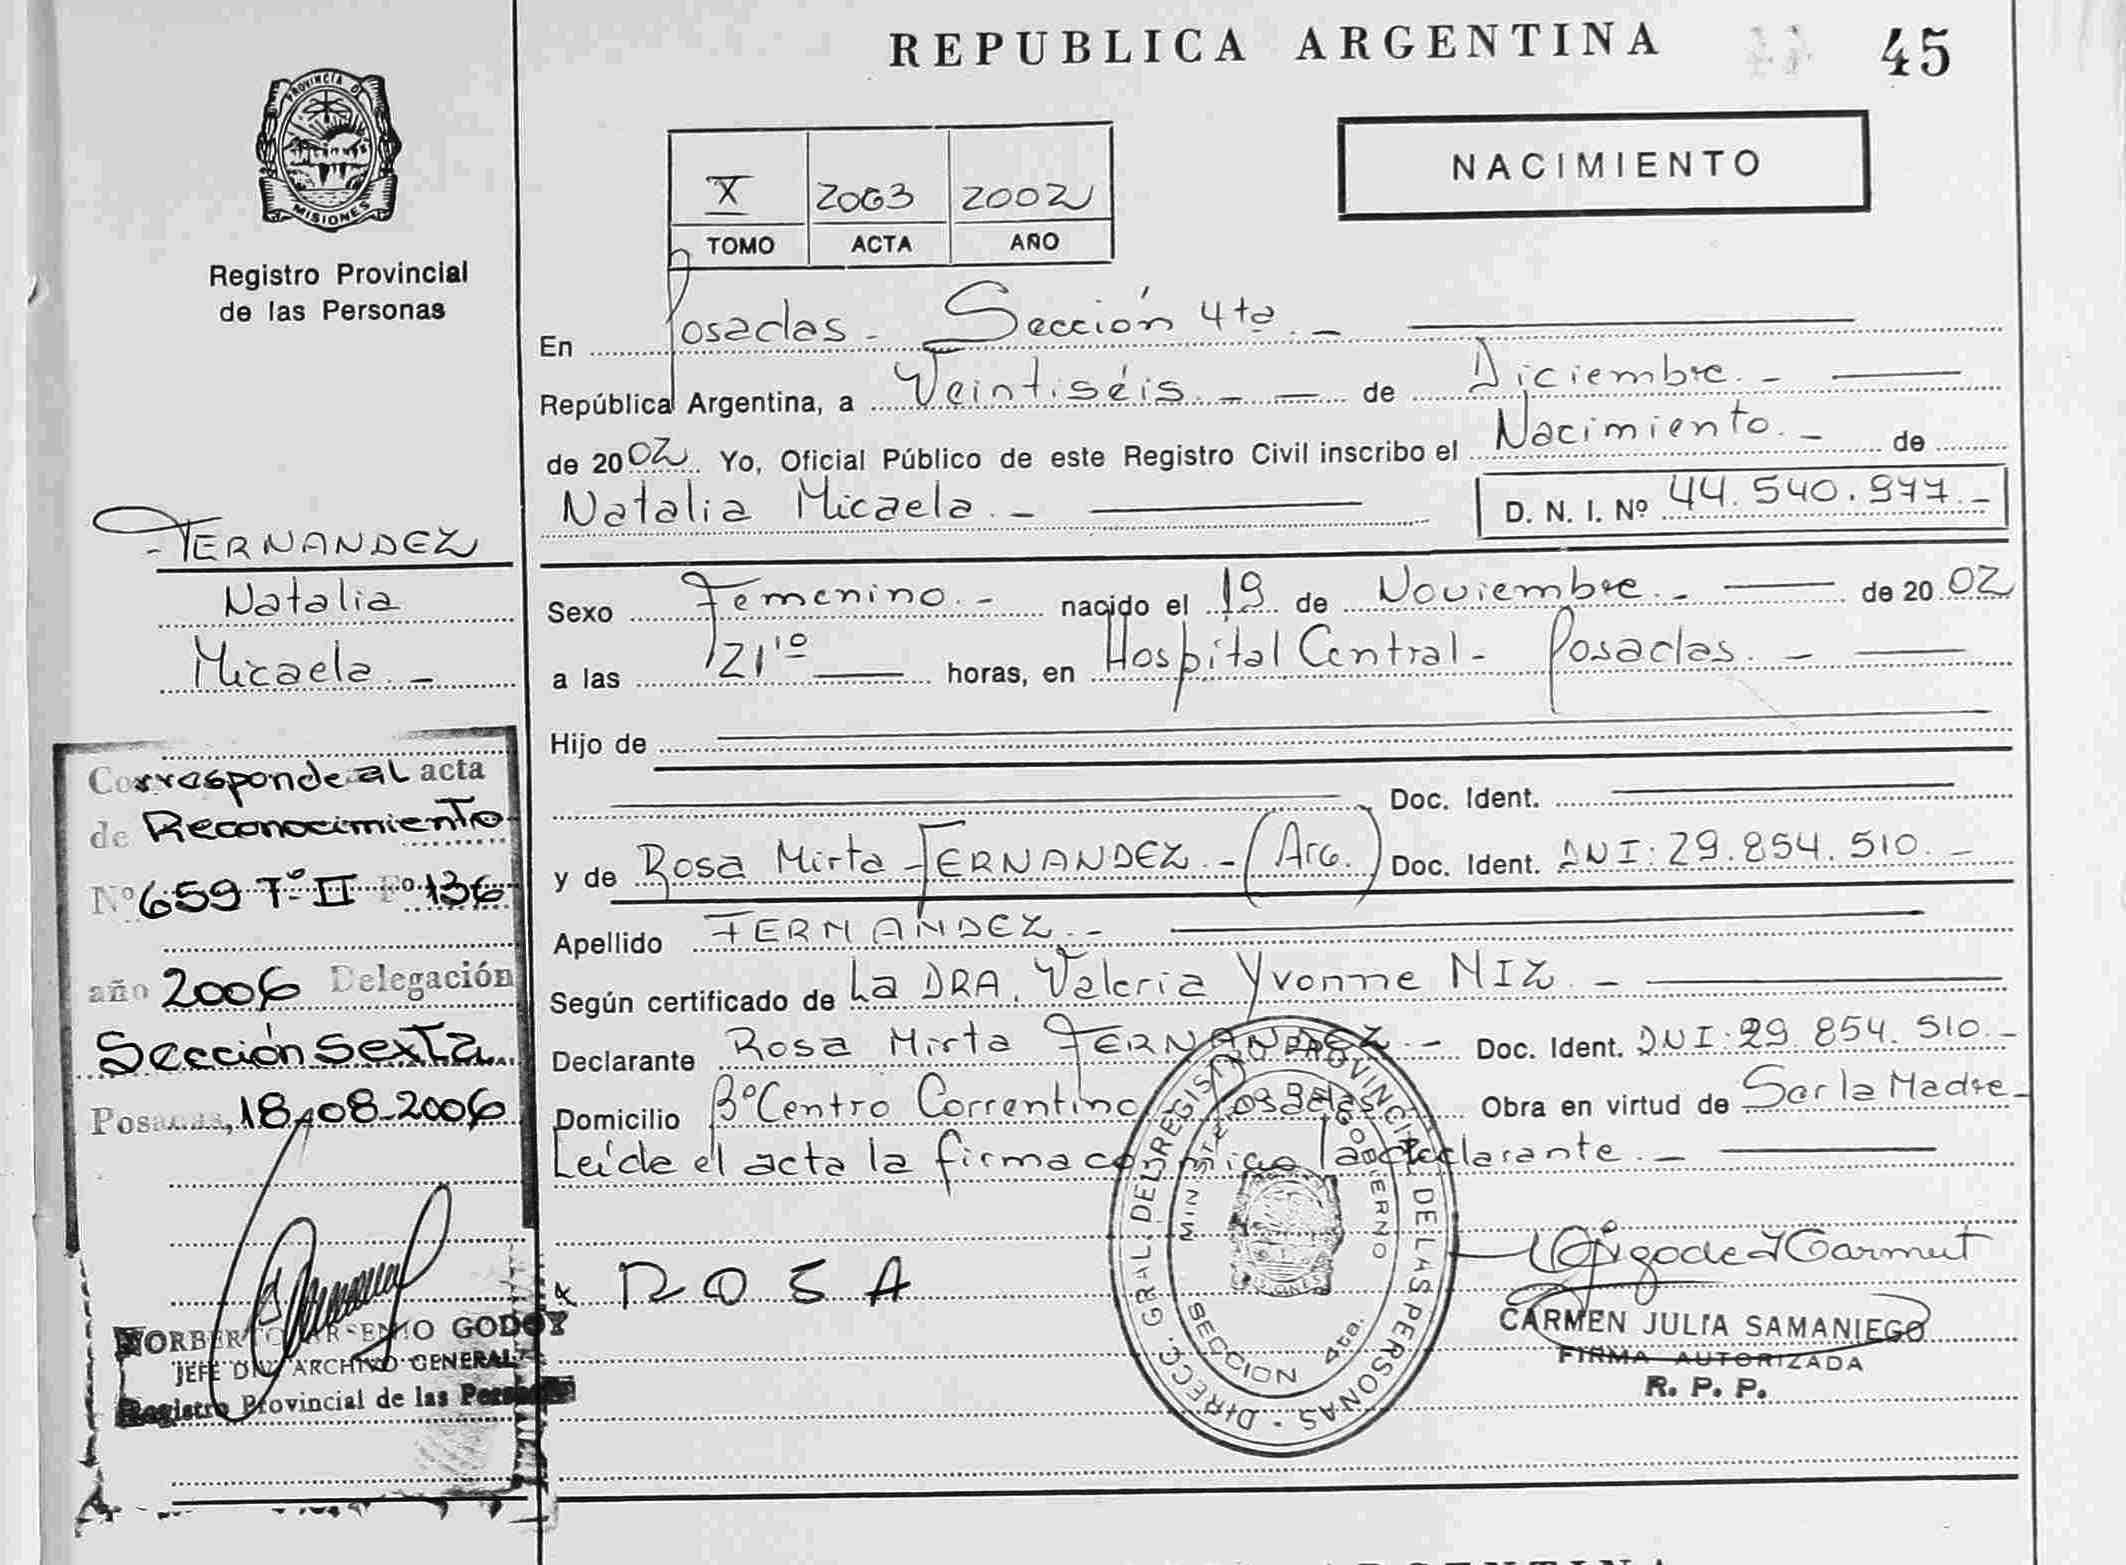 REPUBLICA ARGENTINA 45
PROVINCIA DE
MISIONES
Registro Provincial
de las Personas
NACIMIENTO
X 2003 2002
TOMO ACTA AÑO
En Posadas - Sección 4ta. -
República Argentina, a Veintiséis. - de Diciembre. -
de 2002 Yo, Oficial Público de este Registro Civil inscribo el Nacimiento. - de
Natalia Micaela. - D. N. I. Nº 44.540.977. -
FERNANDEZ
Natalia
Micaela. -
Sexo Femenino. - nacido el 19 de Noviembre. - de 2002
a las 21'10 horas, en Hospital Central - Posadas. -
Hijo de
Doc. Ident.
y de Rosa Mirta FERNANDEZ. - (Arg.) Doc. Ident. DNI: 29.854.510. -
Apellido FERNANDEZ. -
Según certificado de La DRA. Valeria Yvonne MIZ. -
Declarante Rosa Mirta FERNANDEZ. - Doc. Ident. DNI: 29.854.510. -
Domicilio Bº Centro Correntino Posadas Obra en virtud de Ser la Madre -
Leída el acta la firma conmigo la declarante. -
Corresponde al acta
de Reconocimiento
Nº 659 Tº II Fº 136
año 2006 Delegación
Sección Sexta
Posadas, 18-08-2006
NORBERTO ARSENIO GODOY
JEFE DIV. ARCHIVO GENERAL
Registro Provincial de las Personas
ROSA
DIRECC. GRAL. DEL REGISTRO PROVINCIAL DE LAS PERSONAS
MINISTERIO GOBIERNO
SECCION 4ta.
CARMEN JULIA SAMANIEGO
FIRMA AUTORIZADA
R. P. P.